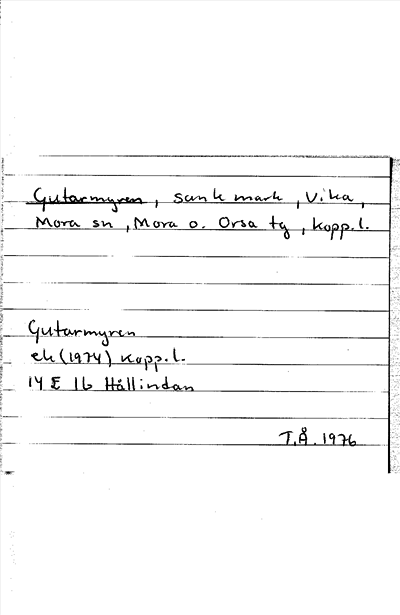 Gutarmyren, sank mark, Vika,
Mora sn, Mora o. Orsa tg, Kopp.l.
Gutarmyren
ek (1974) Kopp.l.
14 E 1b Hållindan
T.Å. 1976